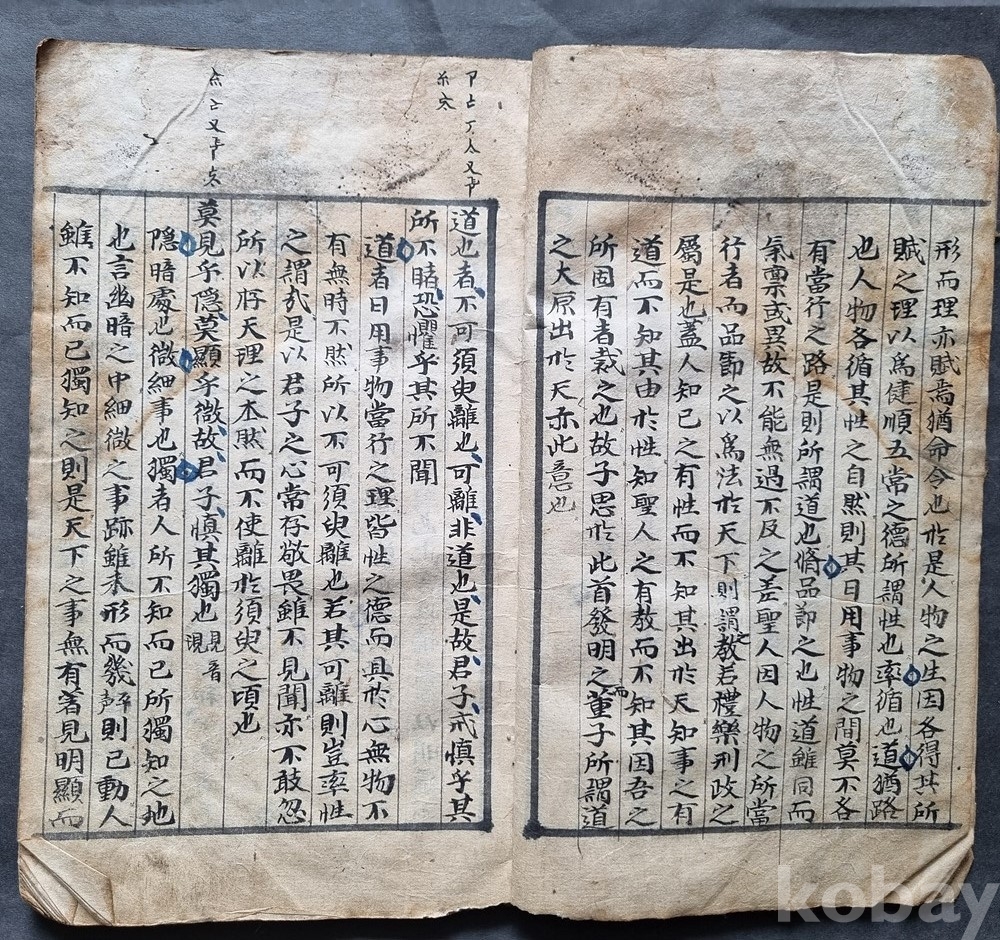 形而理亦賦焉猶命令也於是人物之生因各得其所
賦之理以爲健順五常之德所謂性也率循也道猶路
也人物各循其性之自然則其日用事物之間莫不各
有當行之路是則所謂道也脩品節之也性道雖同而
氣禀或異故不能無過不及之差聖人因人物之所當
行者而品節之以爲法於天下則謂教若禮樂刑政之
屬是也蓋人知己之有性而不知其出於天知事之有
道而不知其由於性知聖人之有教而不知其因吾之
所固有者裁之也故子思於此首發明之而董子所謂道
之大原出於天亦此意也
道也者不可須臾離也可離非道也是故君子戒慎乎其
所不睹恐懼乎其所不聞
道者日用事物當行之理皆性之德而具於心無物不
有無時不然所以不可須臾離也若其可離則豈率性
之謂哉是以君子之心常存敬畏雖不見聞亦不敢忽
所以存天理之本然而不使離於須臾之頃也
莫見乎隱莫顯乎微故君子慎其獨也見音現
隱暗處也微細事也獨者人所不知而己所獨知之地
也言幽暗之中細微之事跡雖未形而幾則已動人
雖不知而己獨知之則是天下之事無有著見明顯而
kobay